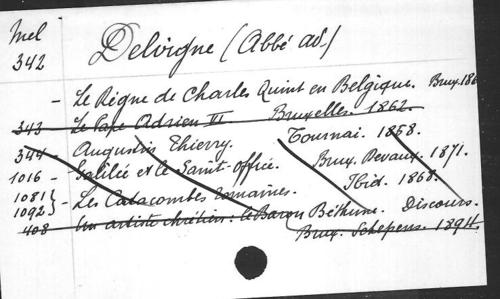 Mel
342 Delvigne (Abbé ad.)
- Le Règne de Charles Quint en Belgique. Brux. 186
343 Le Pape Adrien VI. Bruxelles. 1862.
344 Augustin Thierry. Tournai. 1858.
1016 - Galilée et le Saint-Office. Brux. Devaux. 1871.
1081} - Les Catacombes romaines. Ibid. 1868.
1092}
408 Un artiste chrétien: le Baron Béthune. Discours.
Brux. Schepens. 1894.